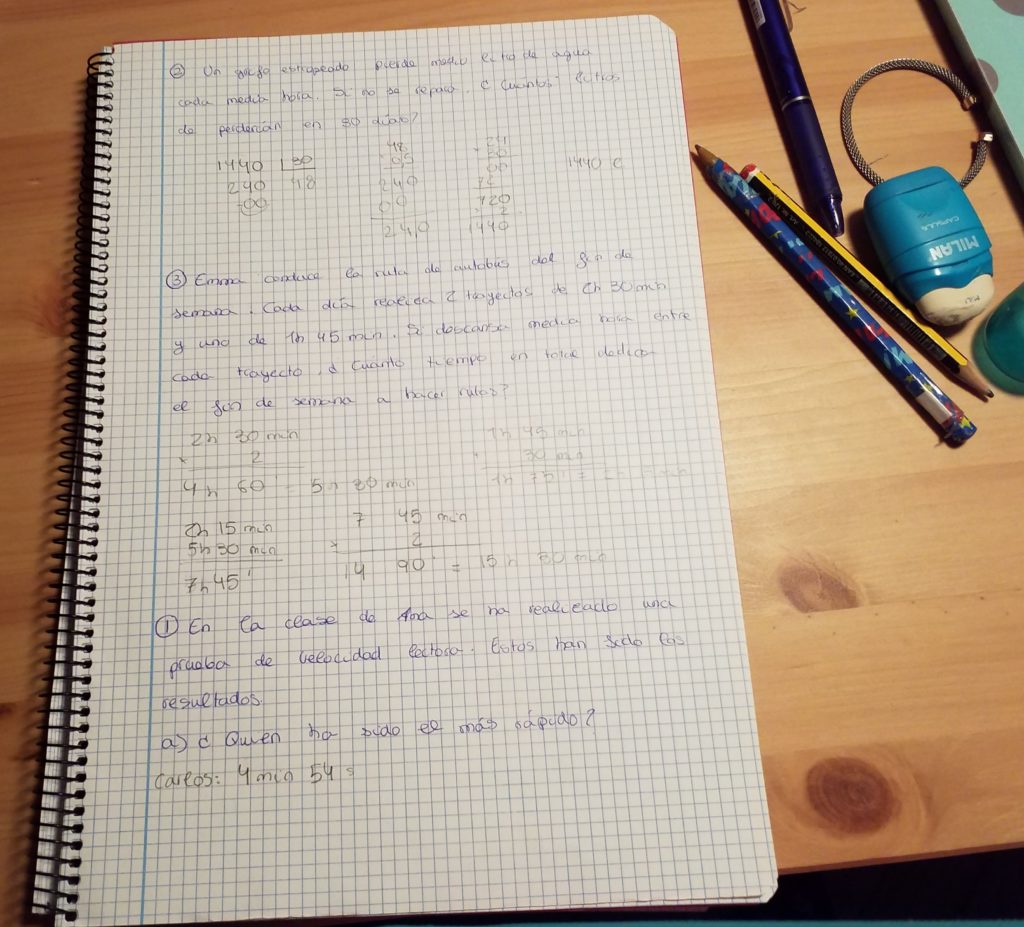 ② Un grifo estropeado pierde medio litro de agua
cada media hora. Si no se repara. ¿ Cuantos litros
de perderían en 30 días?
1440 30
240 48
00
48
05
240
00
240
24
30
00
72
720
2
1440
1440 l
③ Emma conduce la ruta de autobus del fin de
semana. Cada día realiza 2 trayectos de 2h 30min
y uno de 1h 45 min. Si descansa media hora entre
cada trayecto, ¿ Cuanto tiempo en total dedica
el fin de semana a hacer rutas?
2h 30 min
x 2
4h 60' = 5h 00 min
1h 45 min
+ 30 min
1h 75' =
2h 15 min
5h 30 min
7h 45'
7 45 min
x 2
14 90' = 15h 30 min
① En la clase de Ana se ha realizado una
prueba de velocidad lectora. Estos han sido los
resultados.
a) ¿ Quien ha sido el más rápido?
Carlos: 4 min 54 s
MILAN
CAPSULE